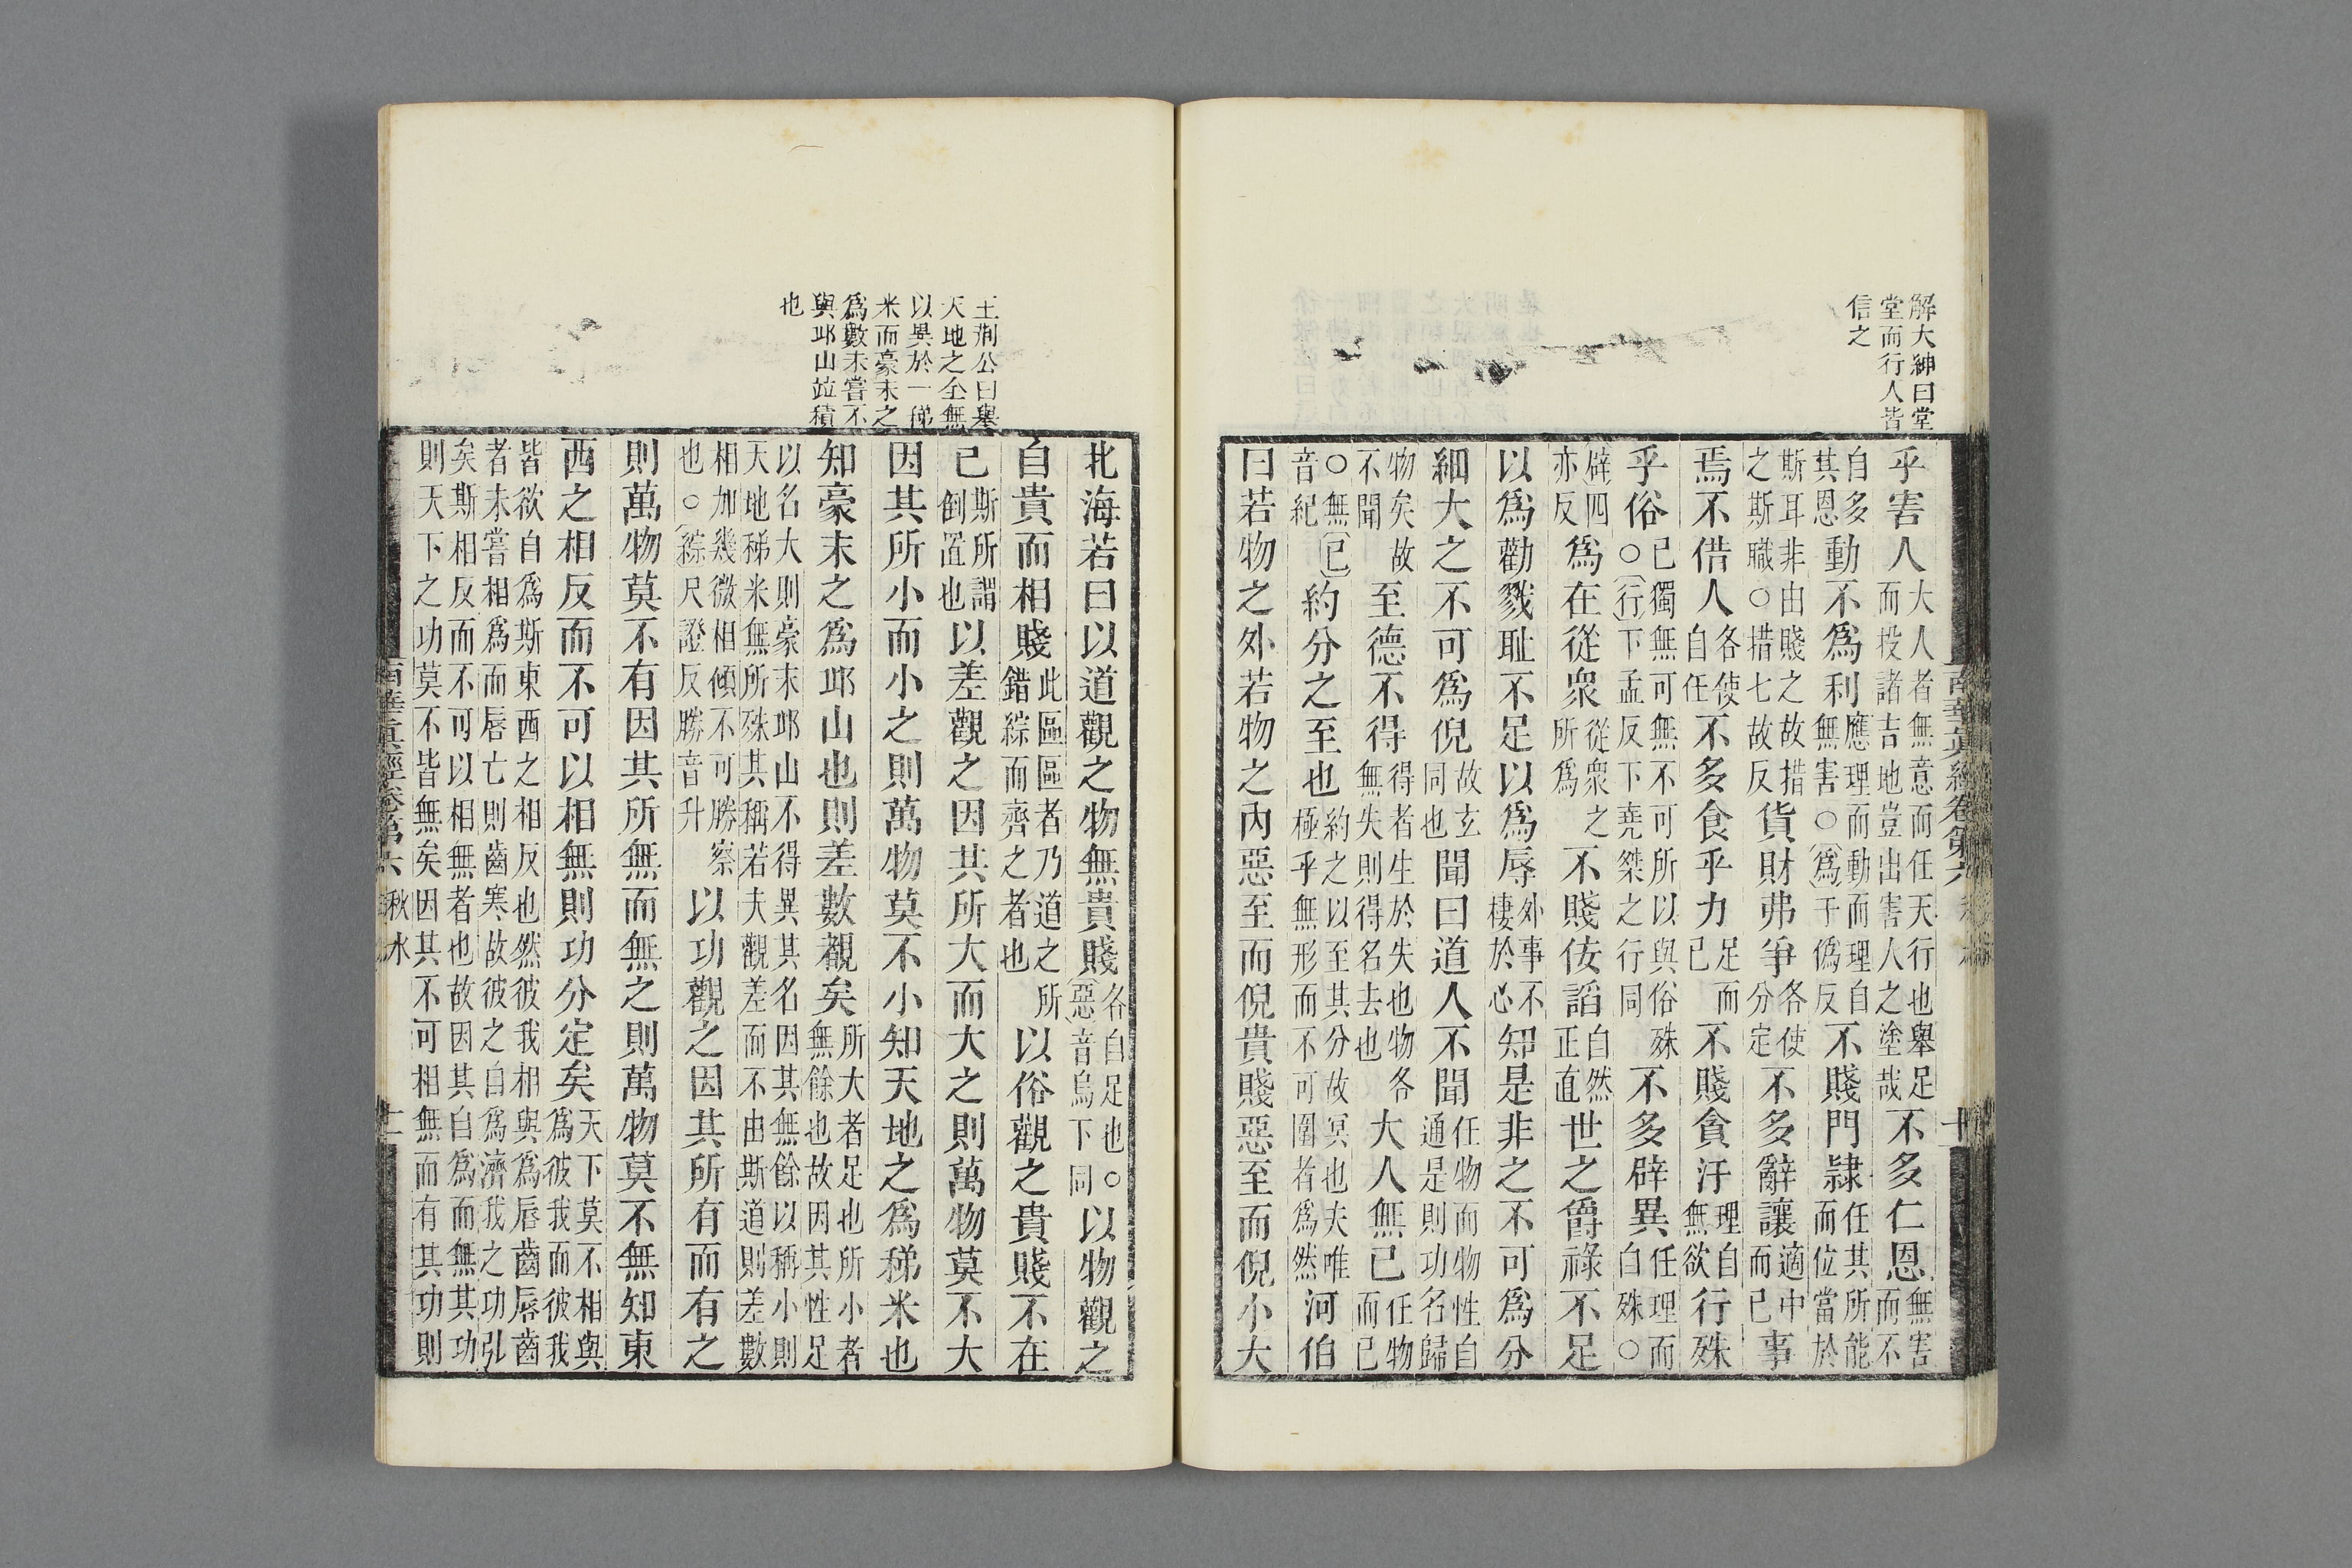 解大紳曰堂
堂而行人皆
信之
南華眞經卷第六
乎害人大人者無意而任天行也舉足而投諸吉地豈出害人之塗哉不多仁恩無害而不
自多其恩動不爲利應理而動而理自無害○爲于僞反不賤門隷任其所能而位當於
斯耳非由賤之故措之斯職○措七故反貨財弗爭各使分定不多辭讓適中而已事
焉不借人各使自任不多食乎力足而已不賤貪汙理自無欲行殊
乎俗已獨無可無不可所以與俗殊○行下孟反下堯桀之行同不多辟異任理而自殊○
辟四亦反爲在從衆從衆之所爲不賤佞諂自然正直世之爵祿不足
以爲勸戮耻不足以爲辱外事不棲於心知是非之不可爲分
細大之不可爲倪故玄同也聞曰道人不聞任物而物性自通是則功名歸
物矣故不聞至德不得得者生於失也物各無失則得名去也大人無已任物而已
○無已音紀約分之至也約之以至其分故冥也夫唯極乎無形而不可圍者爲然河伯
曰若物之外若物之內惡至而倪貴賤惡至而倪小大
王荊公曰舉
天地之全無
以異於一稊
米而豪末之
爲數未嘗不
與邱山竝積
也
北海若曰以道觀之物無貴賤各自足也○惡音烏下同以物觀之
自貴而相賤此區區者乃道之所錯綜而齊之者也以俗觀之貴賤不在
己斯所謂倒置也以差觀之因其所大而大之則萬物莫不大
因其所小而小之則萬物莫不小知天地之爲稊米也
知豪末之爲邱山也則差數覩矣所大者足也所小者無餘也故因其性足
以名大則豪末邱山不得異其名因其無餘以稱小則天地稊米無所殊其稱若夫觀差而不由斯道則差數
相加幾微相傾不可勝察也○綜尺證反勝音升以功觀之因其所有而有之
則萬物莫不有因其所無而無之則萬物莫不無知東
西之相反而不可以相無則功分定矣天下莫不相與爲彼我而彼我
皆欲自爲斯東西之相反也然彼我相與爲脣齒脣齒者未嘗相爲而脣亡則齒寒故彼之自爲濟我之功弘
矣斯相反而不可以相無者也故因其自爲而無其功則天下之功莫不皆無矣因其不可相無而有其功則
南華眞經卷第六 秋水 十一